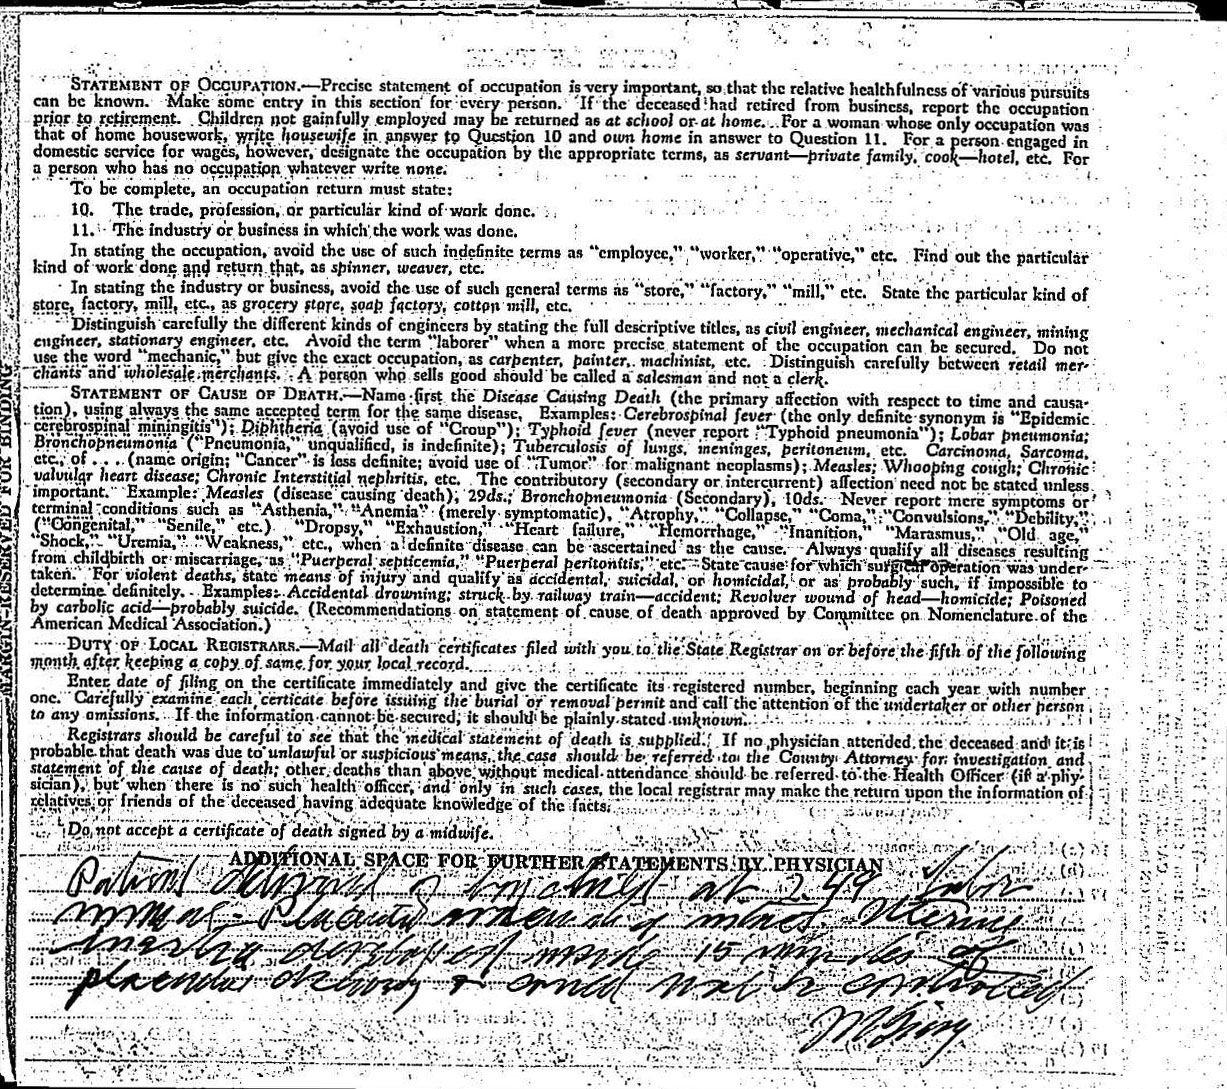 STATEMENT OF OCCUPATION.—Precise statement of occupation is very important, so that the relative healthfulness of various pursuits
can be known. Make some entry in this section for every person. If the deceased had retired from business, report the occupation
prior to retirement. Children not gainfully employed may be returned as at school or at home. For a woman whose only occupation was
that of home housework, write housewife in answer to Question 10 and own home in answer to Question 11. For a person engaged in
domestic service for wages, however, designate the occupation by the appropriate terms, as servant—private family, cook—hotel, etc. For
a person who has no occupation whatever write none.
To be complete, an occupation return must state:
10. The trade, profession, or particular kind of work done.
11. The industry or business in which the work was done.
In stating the occupation, avoid the use of such indefinite terms as "employee," "worker," "operative," etc. Find out the particular
kind of work done and return that, as spinner, weaver, etc.
In stating the industry or business, avoid the use of such general terms as "store," "factory," "mill," etc. State the particular kind of
store, factory, mill, etc., as grocery store, soap factory, cotton mill, etc.
Distinguish carefully the different kinds of engineers by stating the full descriptive titles, as civil engineer, mechanical engineer, mining
engineer, stationary engineer, etc. Avoid the term "laborer" when a more precise statement of the occupation can be secured. Do not
use the word "mechanic," but give the exact occupation, as carpenter, painter, machinist, etc. Distinguish carefully between retail mer-
chants and wholesale merchants. A person who sells good should be called a salesman and not a clerk.
STATEMENT OF CAUSE OF DEATH.—Name first the Disease Causing Death (the primary affection with respect to time and causa-
tion), using always the same accepted term for the same disease, Examples: Cerebrospinal fever (the only definite synonym is "Epidemic
cerebrospinal miningitis"); Diphtheria (avoid use of "Croup"); Typhoid fever (never report "Typhoid pneumonia"); Lobar pneumonia;
Bronchopneumonia ("Pneumonia," unqualified, is indefinite); Tuberculosis of lungs, meninges, peritoneum, etc. Carcinoma, Sarcoma,
etc., of . . . . (name origin; "Cancer" is less definite; avoid use of "Tumor" for malignant neoplasms); Measles; Whooping cough; Chronic
valvular heart disease; Chronic Interstitial nephritis, etc. The contributory (secondary or intercurrent) affection need not be stated unless
important. Example: Measles (disease causing death), 29ds.; Bronchopneumonia (Secondary), 10ds. Never report mere symptoms or
terminal conditions such as "Asthenia," "Anemia" (merely symptomatic), "Atrophy," "Collapse," "Coma," "Convulsions," "Debility,"
("Congenital," "Senile," etc.) "Dropsy," "Exhaustion," "Heart failure," "Hemorrhage," "Inanition," "Marasmus," "Old age,"
"Shock," "Uremia," "Weakness," etc., when a definite disease can be ascertained as the cause. Always qualify all diseases resulting
from childbirth or miscarriage, as "Puerperal septicemia," "Puerperal peritonitis," etc. State cause for which surgical operation was under-
taken. For violent deaths, state means of injury and qualify as accidental, suicidal, or homicidal, or as probably such, if impossible to
determine definitely. Examples: Accidental drowning; struck by railway train—accident; Revolver wound of head—homicide; Poisoned
by carbolic acid—probably suicide. (Recommendations on statement of cause of death approved by Committee on Nomenclature of the
American Medical Association.)
DUTY OF LOCAL REGISTRARS.—Mail all death certificates filed with you to the State Registrar on or before the fifth of the following
month after keeping a copy of same for your local record.
Enter date of filing on the certificate immediately and give the certificate its registered number, beginning each year with number
one. Carefully examine each certicate before issuing the burial or removal permit and call the attention of the undertaker or other person
to any omissions. If the information cannot be secured, it should be plainly stated unknown.
Registrars should be careful to see that the medical statement of death is supplied. If no physician attended the deceased and it is
probable that death was due to unlawful or suspicious means, the case should be referred to the County Attorney for investigation and
statement of the cause of death; other deaths than above without medical attendance should be referred to the Health Officer (if a phy-
sician), but when there is no such health officer, and only in such cases, the local registrar may make the return upon the information of
relatives or friends of the deceased having adequate knowledge of the facts.
Do not accept a certificate of death signed by a midwife.
ADDITIONAL SPACE FOR FURTHER STATEMENTS BY PHYSICIAN
Patient delivered of boy child at 2.49 Labor
normal - Placenta intact. Uterine
inertia developed inside 15 minutes of
placental delivery & could not be controlled
MARGIN RESERVED FOR BINDING